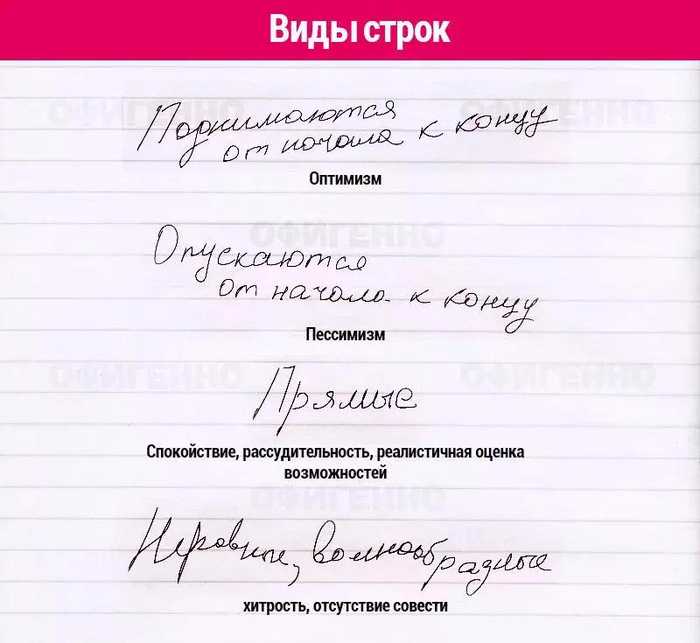 Виды строк
ОФИГЕННО ОФИГЕННО
Поднимаются
от начала к концу
Оптимизм
ОФИГЕННО
Опускаются
от начала к концу
Пессимизм
ОФИГЕННО ОФИГЕННО
Прямые
Спокойствие, рассудительность, реалистичная оценка
возможностей
ОФИГЕННО
Неровные, волнообразные
хитрость, отсутствие совести